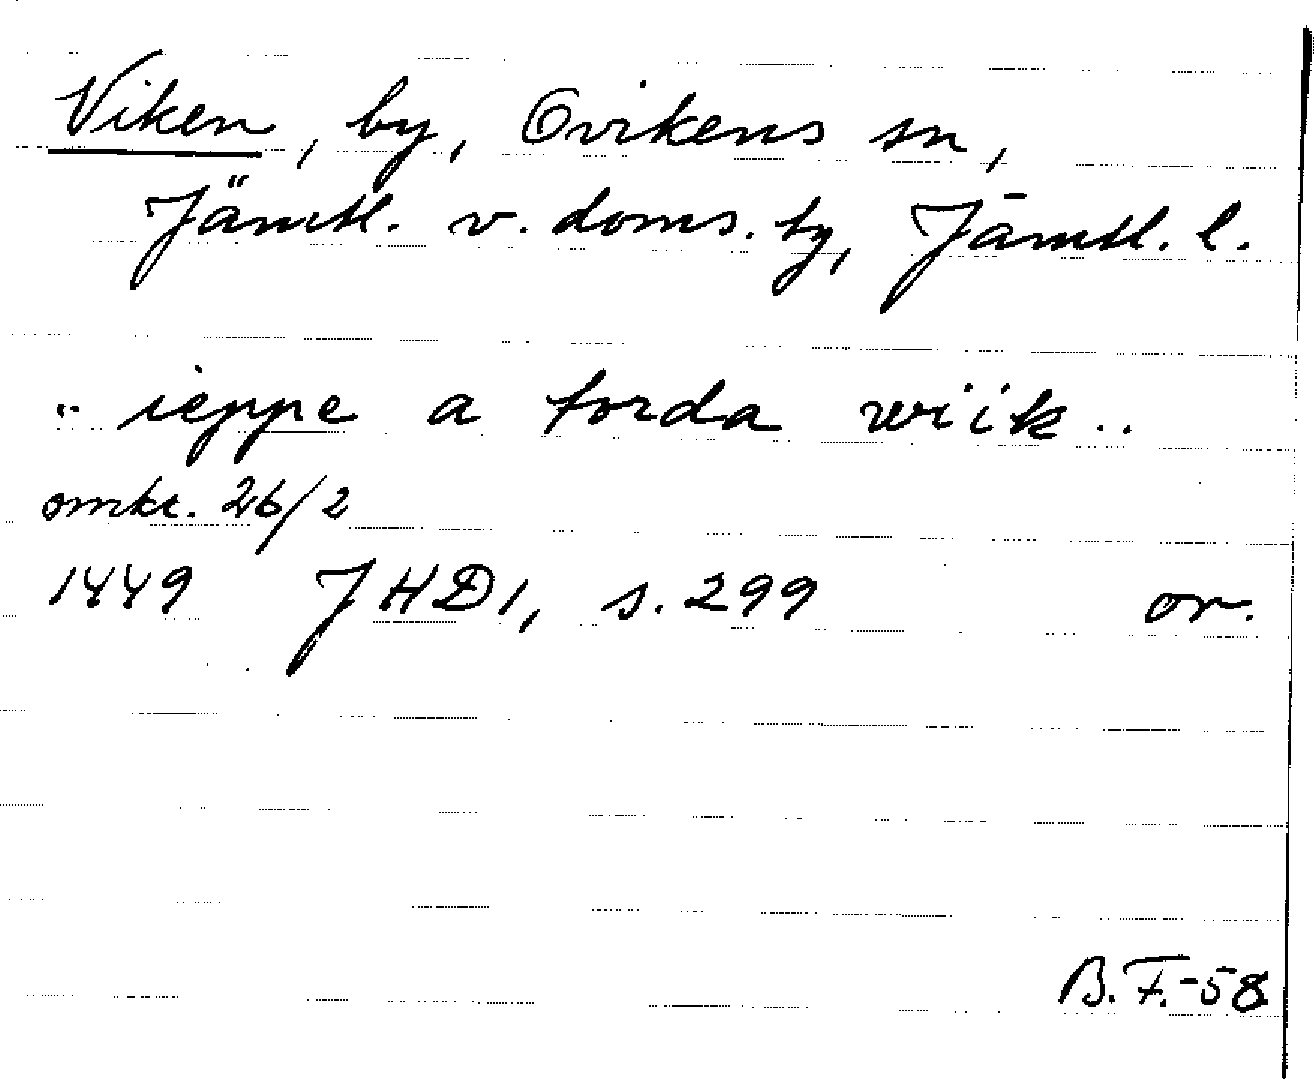 Viken, by, Ovikens sn,
Jämtl. v. doms. by, Jämtl. l.
.. ieppe a torda wiik ..
omkr. 26/2
1449 JHD1, s. 299 or.
B.F.-58